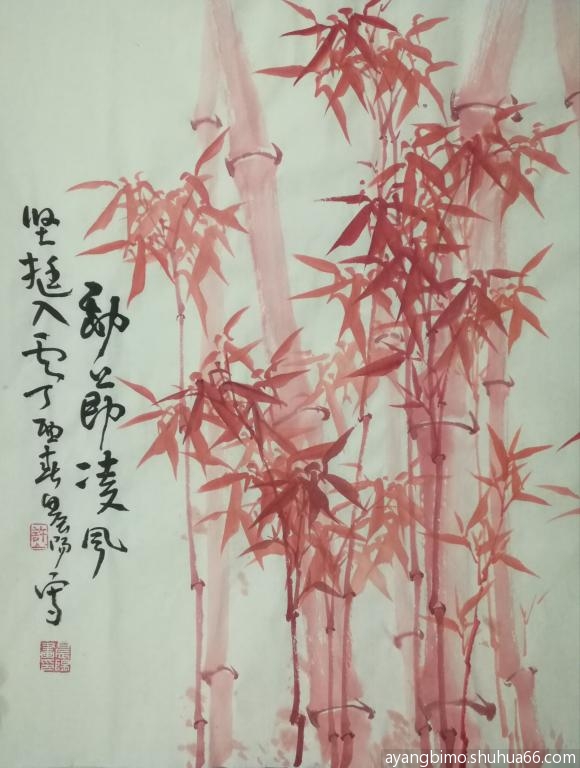 劲节凌风
坚挺入云丁酉春晨阳写
許
ayangbimo.shuhua66.com